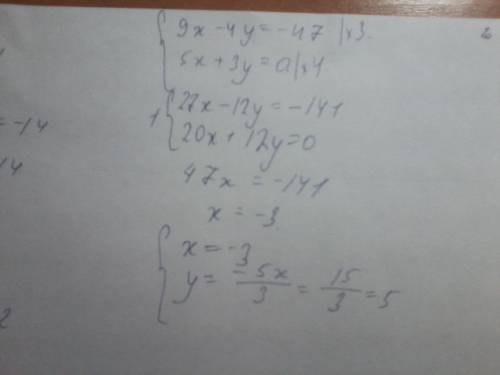 2
{ 9x - 4y = -47 | x3
5x + 3y = 0 | x4
= -14
1 { 27x - 12y = -141
20x + 12y = 0
14
47x = -141
x = -3
{ x = -3
y = -5x/3 = 15/3 = 5
2